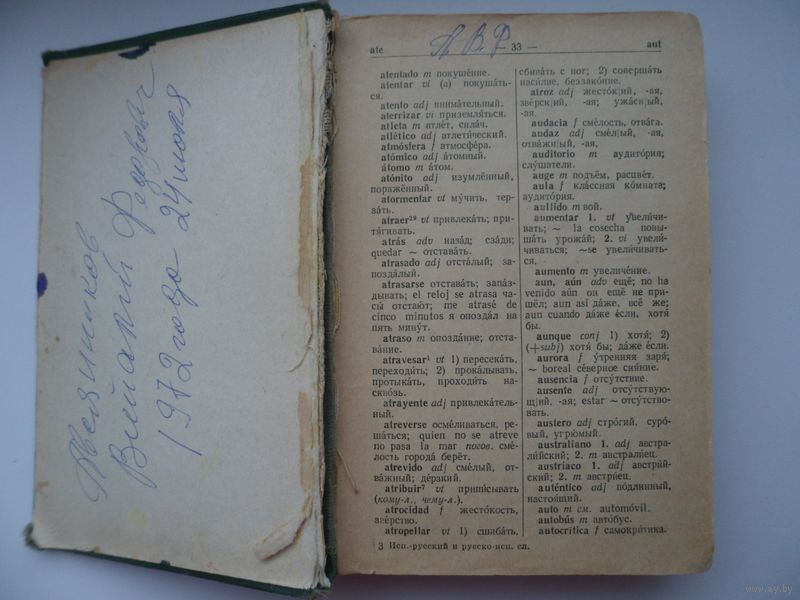 Виталий Федорович
1972 года 24 июля
ate
А. В. Р.
— 33 —
aut
atentado m покушéние.
atentar vi (a) покушáть-
ся.
atento adj внимáтельный.
aterrizar vi приземля́ться.
atleta m атлéт, силáч.
atlético adj атлети́ческий.
atmósfera f атмосфéра.
atómico adj áтомный.
átomo m áтом.
atónito adj изумлённый,
поражённый.
atormentar vt му́чить, тер-
зáть.
atraer²⁹ vt привлекáть; при-
тя́гивать.
atrás adv назáд; сзáди;
quedar ~ отставáть.
atrasado adj отстáлый; за-
поздáлый.
atrasarse отставáть; запáз-
дывать; el reloj se atrasa ча-
сы́ отстаю́т; me atrasé de
cinco minutos я опоздáл на
пять мину́т.
atraso m опоздáние; отста-
вáние.
atravesar¹ vt 1) пересекáть,
переходи́ть; 2) прокáлывать,
протыкáть, проходи́ть на-
сквóзь.
atrayente adj привлекáтель-
ный.
atreverse осмéливаться, ре-
шáться; quien no se atreve
no pasa la mar погов. смé-
лость городá берёт.
atrevido adj смéлый, от-
вáжный; дéрзкий.
atribuir⁷ vt припи́сывать
(кому-л., чему-л.).
atrocidad f жестóкость,
звéрство.
atropellar vt 1) сшибáть,
3 Исп.-русский и русско-исп. сл.
сбивáть с ног; 2) совершáть
наси́лие, беззакóние.
atroz adj жестóк|ий, -ая,
звéрск|ий, -ая; ужáсн|ый,
-ая.
audacia f смéлость, отвáга.
audaz adj смéл|ый, -ая,
отвáжн|ый, -ая.
auditorio m аудитóрия;
слу́шатели.
auge m подъём, расцвéт.
aula f клáссная кóмната;
аудитóрия.
aullido m вой.
aumentar 1. vt увели́чи-
вать; ~ la cosecha повы-
шáть урожáй; 2. vi увели́-
чиваться; ~se увели́чивать-
ся.
aumento m увеличéние.
aun, aún adv ещё; no ha
venido aún он ещё не при-
шёл; aun así дáже, всё же;
aun cuando дáже éсли, хотя́
бы.
aunque conj 1) хотя́; 2)
(+subj) хотя́ бы; дáже éсли.
aurora f у́тренняя заря́;
~ boreal сéверное сия́ние.
ausencia f отсу́тствие.
ausente adj отсу́тствую-
щ|ий, -ая; estar ~ отсу́тство-
вать.
austero adj стрóгий, сурó-
вый, угрю́мый.
australiano 1. adj австра-
ли́йский; 2. m австрали́ец.
austriaco 1. adj австри́й-
ский; 2. m австри́ец.
auténtico adj пóдлинный,
настоя́щий.
auto m см. automóvil.
autobús m автóбус.
autocrítica f самокри́тика.
www.ay.by